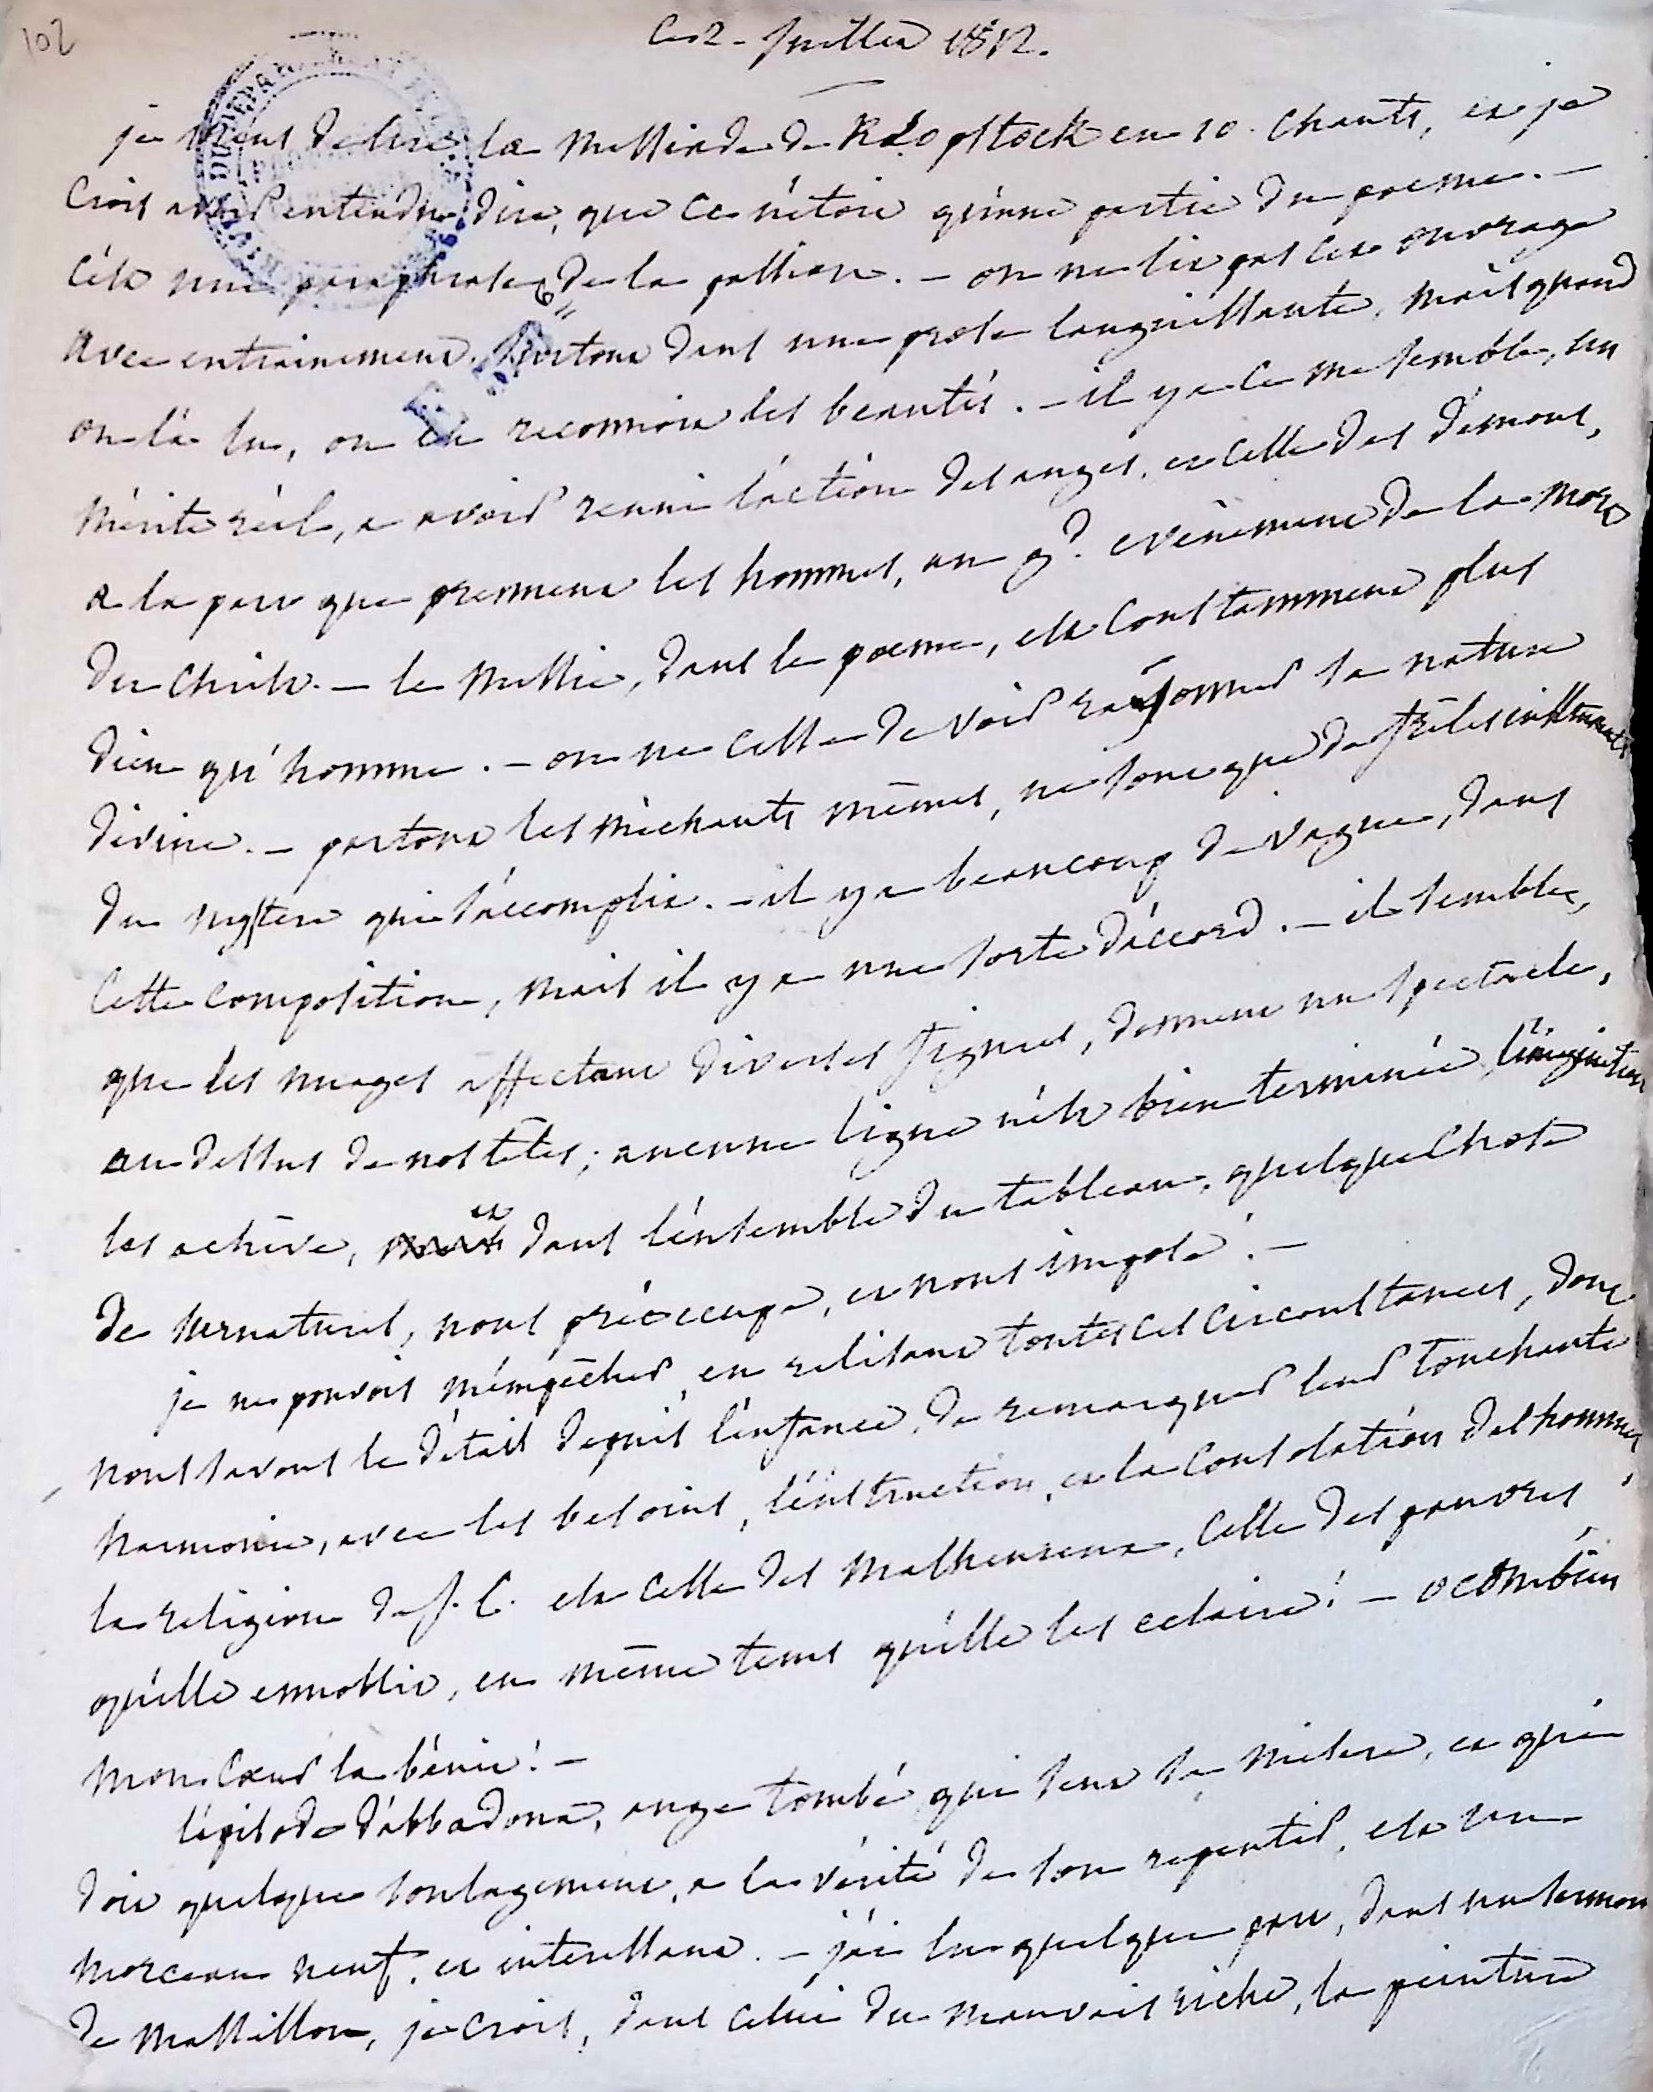 102
Ce 2. Juillet 1812.
je viens de lire la Messiade de Klopstock en 10. chants, et je
crois avoir entendu dire, que ce n'étoit qu'une partie du poeme. —
C'est une paraphrase de la passion. — on ne lit pas cet ouvrage
avec entrainement. surtout dans une prose languissante, mais quand
on l'a lu, on en reconnoit les beautés. — il y a ce me semble, un
mérite réel, a avoir reuni l'action des anges, et celle des démons,
a la part que prennent les hommes, au gd. evènement de la mort
du Christ. — le Messie, dans le poeme, est constamment plus
dieu qu'homme. — on ne cesse de voir rayonner sa nature
divine. — partout les méchants mêmes, ne sont que de frêles instruments
du mystere qui s'accomplit. — il y a beaucoup de vague, dans
cette composition, mais il y a une sorte d'accord. — il semble,
que les nuages affectant diverses figures, donnent un spectacle,
au dessus de nos têtes ; aucune ligne n'est bien terminée l'imagination
les achève, et dans l'ensemble du tableau, quelque chose
de surnaturel, nous préoccupe, et nous impose. —
je ne pouvois m'empêcher, en relisant toutes ces circonstances, dont
nous savons le détail depuis l'enfance, de remarquer leur touchante
harmonie, avec les besoins, l'instruction, et la consolation des hommes
la religion de J. C. est celle des malheureux, celle des pauvres,
qu'elle ennoblit, en même tems qu'elle les eclaire ! — o combien
mon cœur la bénit ! —
l'episode d'abbadona, ange tombé qui sent sa misere, et qui
doit quelque soulagement, a la vérité de son repentir, est un
morceau neuf, et interessant. — j'ai lu quelque part, dans un sermon
de Massillon, je crois, dans celui du mauvais riche, la peinture